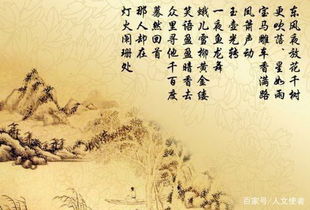 东风夜放花千树
更吹落 星如雨
宝马雕车香满路
凤箫声动
玉壶光转
一夜鱼龙舞
蛾儿雪柳黄金缕
笑语盈盈暗香去
众里寻他千百度
蓦然回首
那人却在
灯火阑珊处
百家号/人文使者